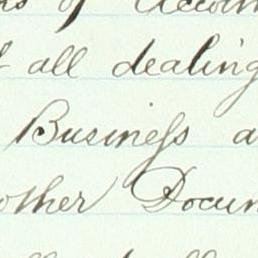 of Accoun
all dealing
Business a
other Docum